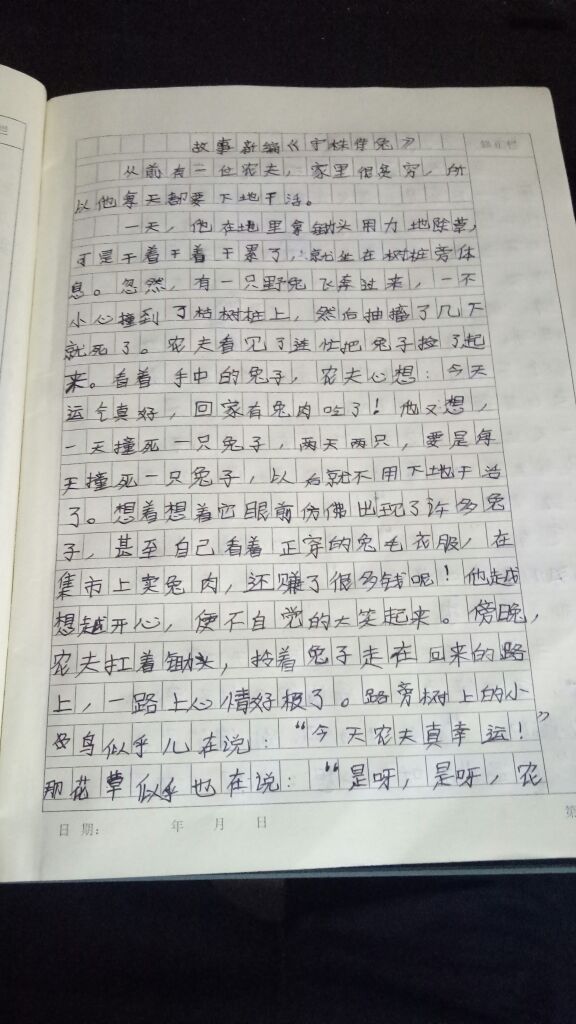 故事新编《守株待兔》
从前有一位农夫，家里很贫穷，所
以他每天都要下地干活。
一天，他在地里拿锄头用力地除草，
于是干着干着干累了，就坐在树桩旁休
息。忽然，有一只野兔飞奔过来，一不
小心撞到了枯树桩上，然后抽搐了几下
就死了。农夫看见了连忙把兔子捡了起
来。看着手中的兔子，农夫心想：今天
运气真好，回家有兔肉吃了！他又想，
一天撞死一只兔子，两天两只，要是每
天撞死一只兔子，以后就不用下地干活
了。想着想着它眼前仿佛出现了许多兔
子，甚至自己看着正穿的兔毛衣服，在
集市上卖兔肉，还赚了很多钱呢！他越
想越开心，便不自觉的大笑起来。傍晚，
农夫扛着锄头，拎着兔子走在回来的路
上，一路上心情好极了。路旁树上的小
鸟似乎儿在说：“今天农夫真幸运！”
那花草似乎也在说：“是呀，是呀，农
日期： 年 月 日
第